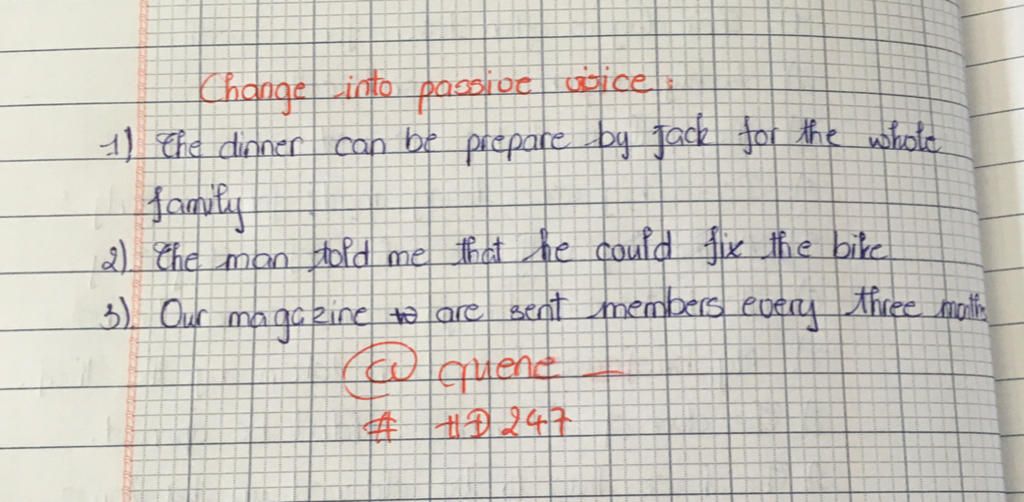 Change into passive voice :
1) The dinner can be prepare by Jack for the whole
family
2) The man told me that he could fix the bike
3) Our magazine are sent members every three months
quene —
# HD247